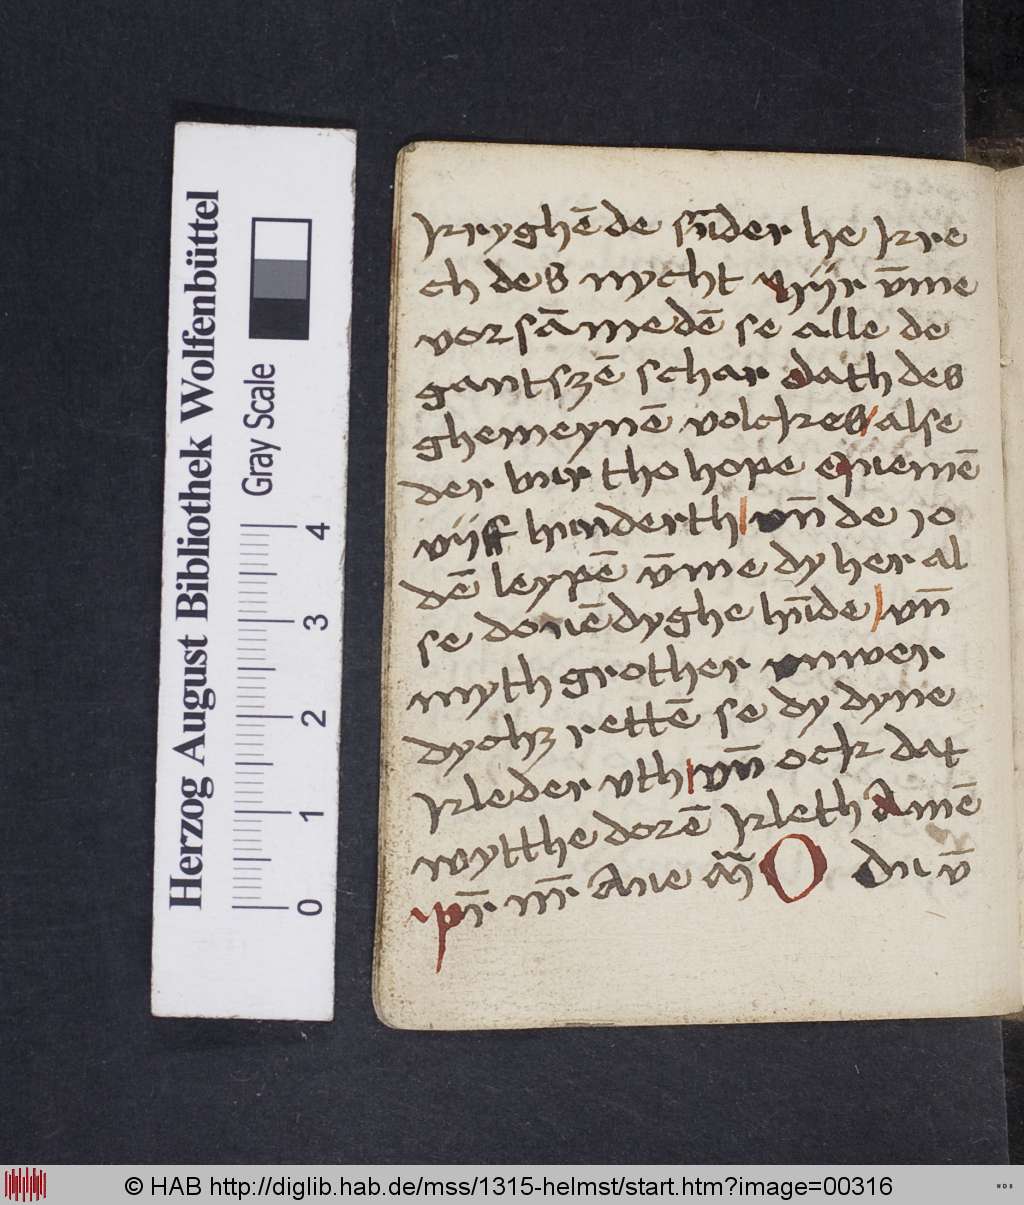 kryghēde sūder he kre
ch des nycht hyr v̄me
vorsāmedē se alle de
gantszē schar dath des
ghemeynē volckes / alse
der bur tho hope quemē
vyff hunderth / vn̄ de io
dē leypē v̄me dy her al
se douēdyghe hūde / vn̄
myth grother vnwer
dychz rettē se dy dyne
kleder vth / vn̄ ock dat
wytthe dorē kleth Amē
pr̄ nr̄ Aue m̄ O Du v̄
Herzog August Bibliothek Wolfenbüttel
Gray Scale
0 1 2 3 4
© HAB http://diglib.hab.de/mss/1315-helmst/start.htm?image=00316